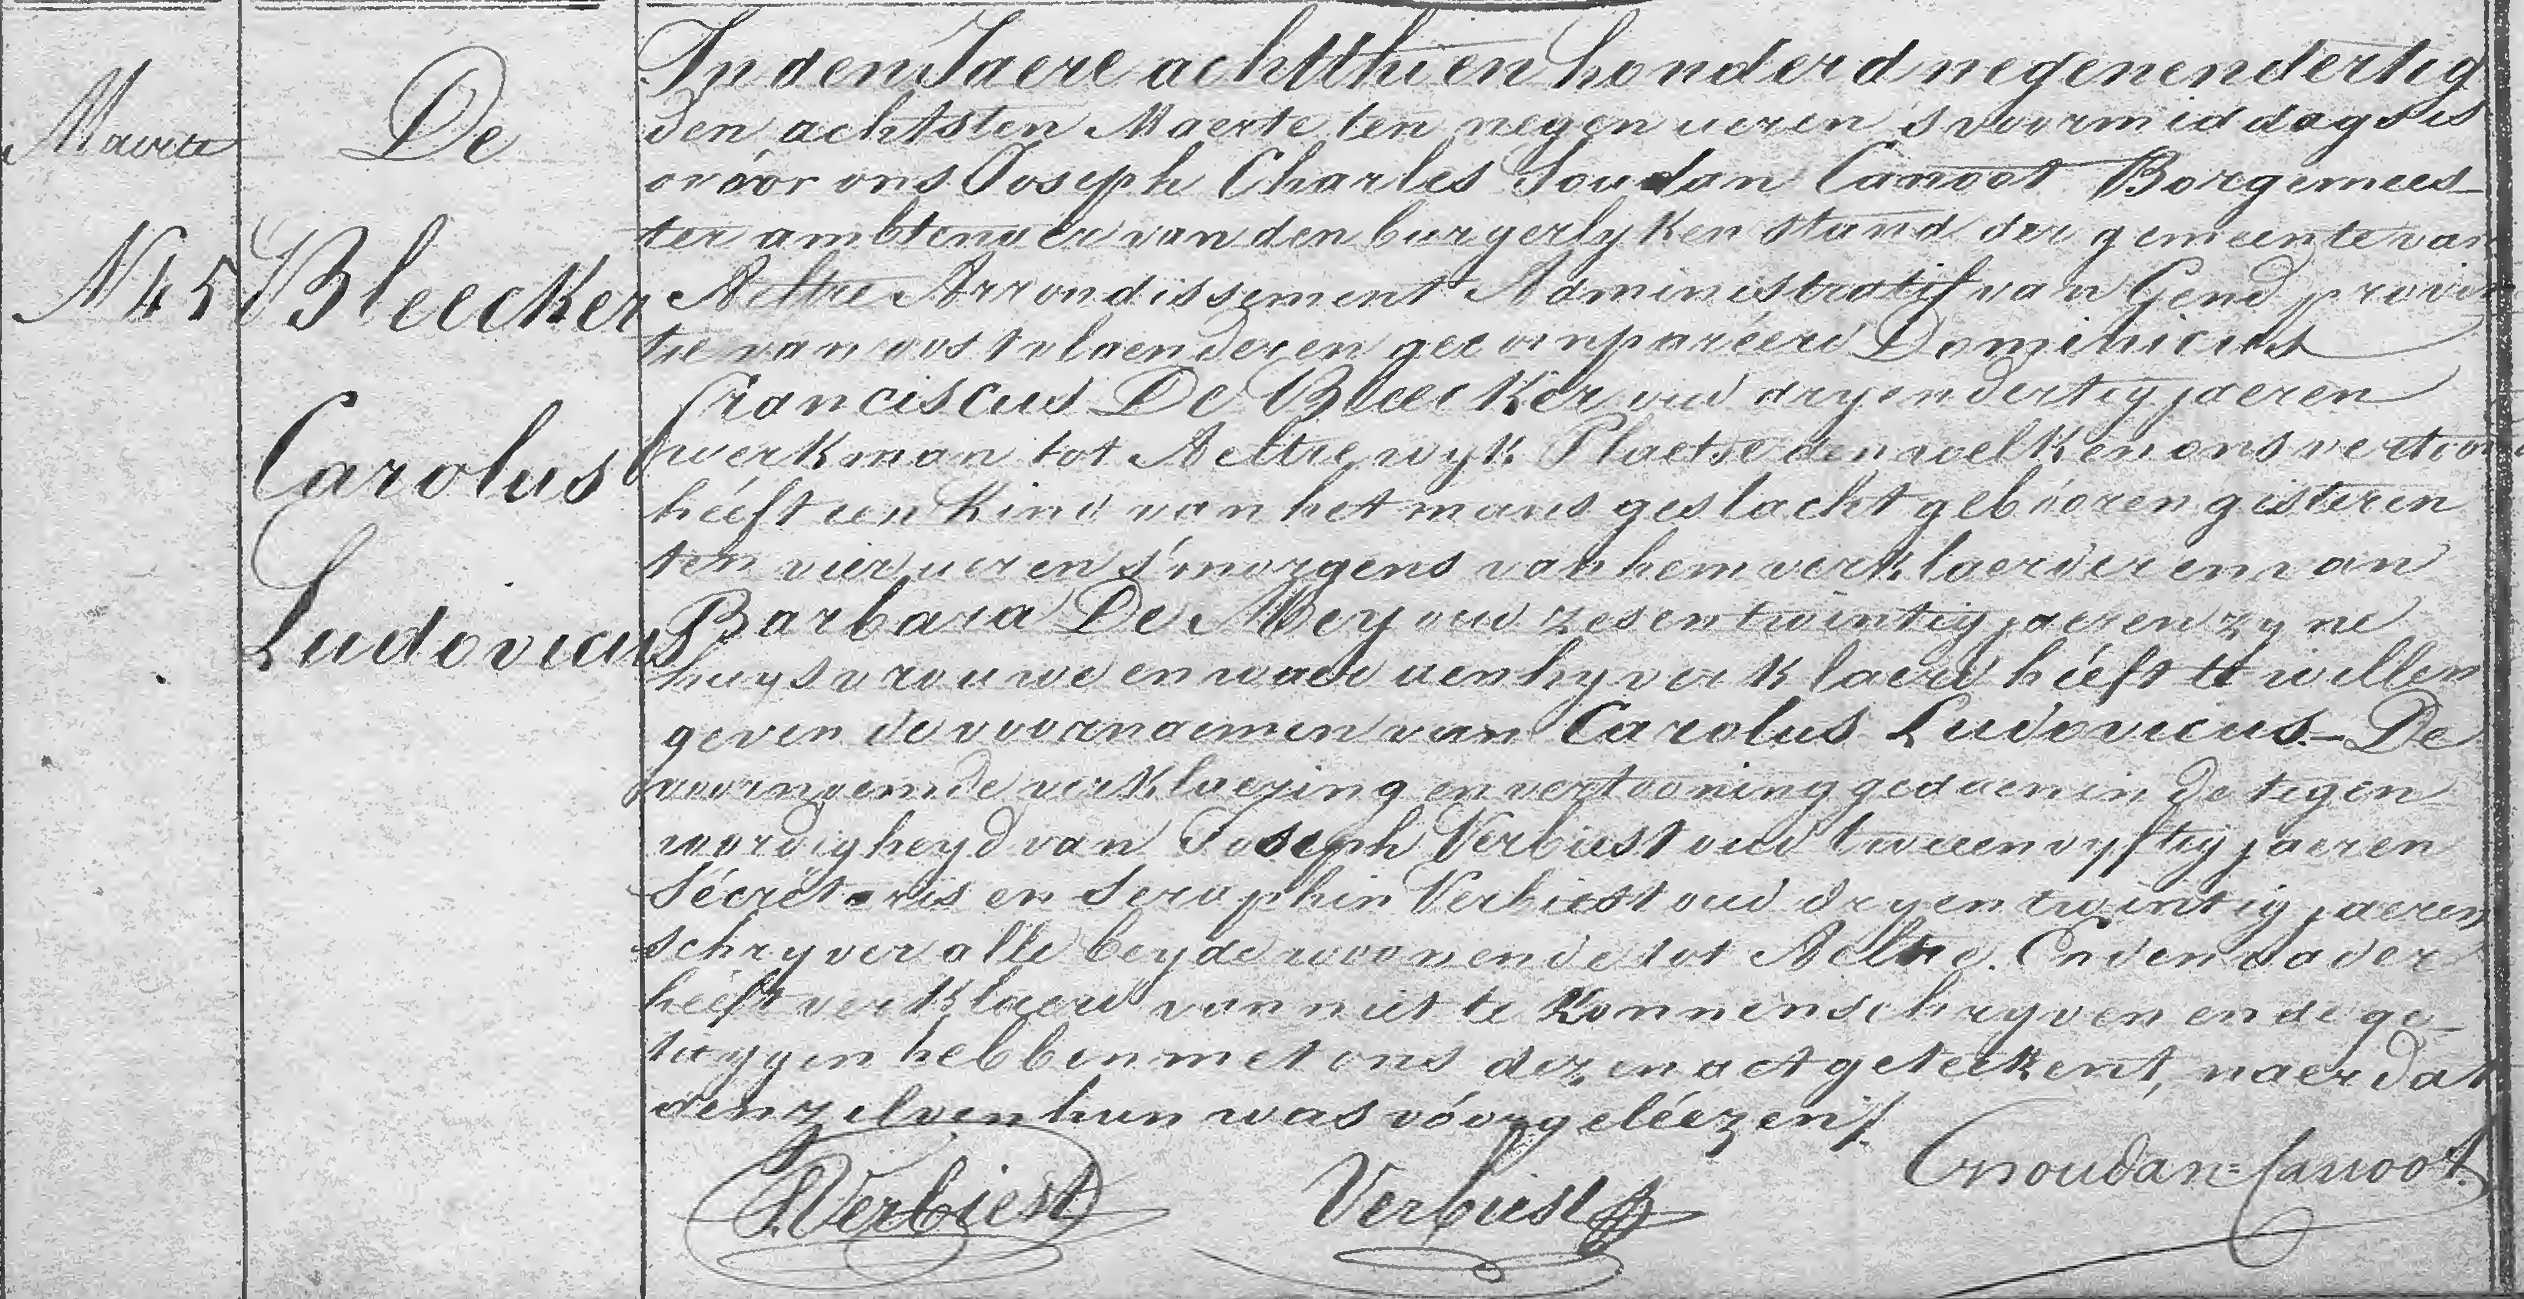 Maerte
N 45
De
Bleecker
Carolus
Ludovicus
In den Jaere achtthien honderd negenendertig
den achtsten Maerte ten negen ueren s'voormiddags is
vóór ons Joseph Charles Soudan Canoot Borgemees-
ter ambtenaer van den burgerlyken stand der gemeente van
Aeltre Arrondissement Administratif van Gend provin
tie van oostvlaenderen gecompareérd Dominicus
Franciscus De Bleecker oud dryendertig jaeren
werkman tot Aeltre wyk Plaetse den welken ons vertoond
hééft een kind van het mans geslacht gebóoren gisteren
ten vier ueren s'morgens van hem verklaerder en van
Barbara De Mey oud zesentwintig jaeren zyne
huysvrouwe en waer aen hy verklaerd hééft te willen
geven de voornaemen van Carolus Ludovicus.- De
voornoemde verklaering en vertooning gedaen in de tegen
wordigheyd van Joseph Verbiest oud tweeenvyftig jaeren
sécrétaris en Seraphin Verbiest oud dryentwintig jaeren
schryver alle beyde woonende tot Aeltre. En den vader
hééft verklaerd van niet te konnen schryven en de ge-
tuygen hebben met ons dezen act geteekent, naer dat
den zelven hun was vóórgeléézen /.
S. Verbiest
Verbiest
Soudan=Canoot.